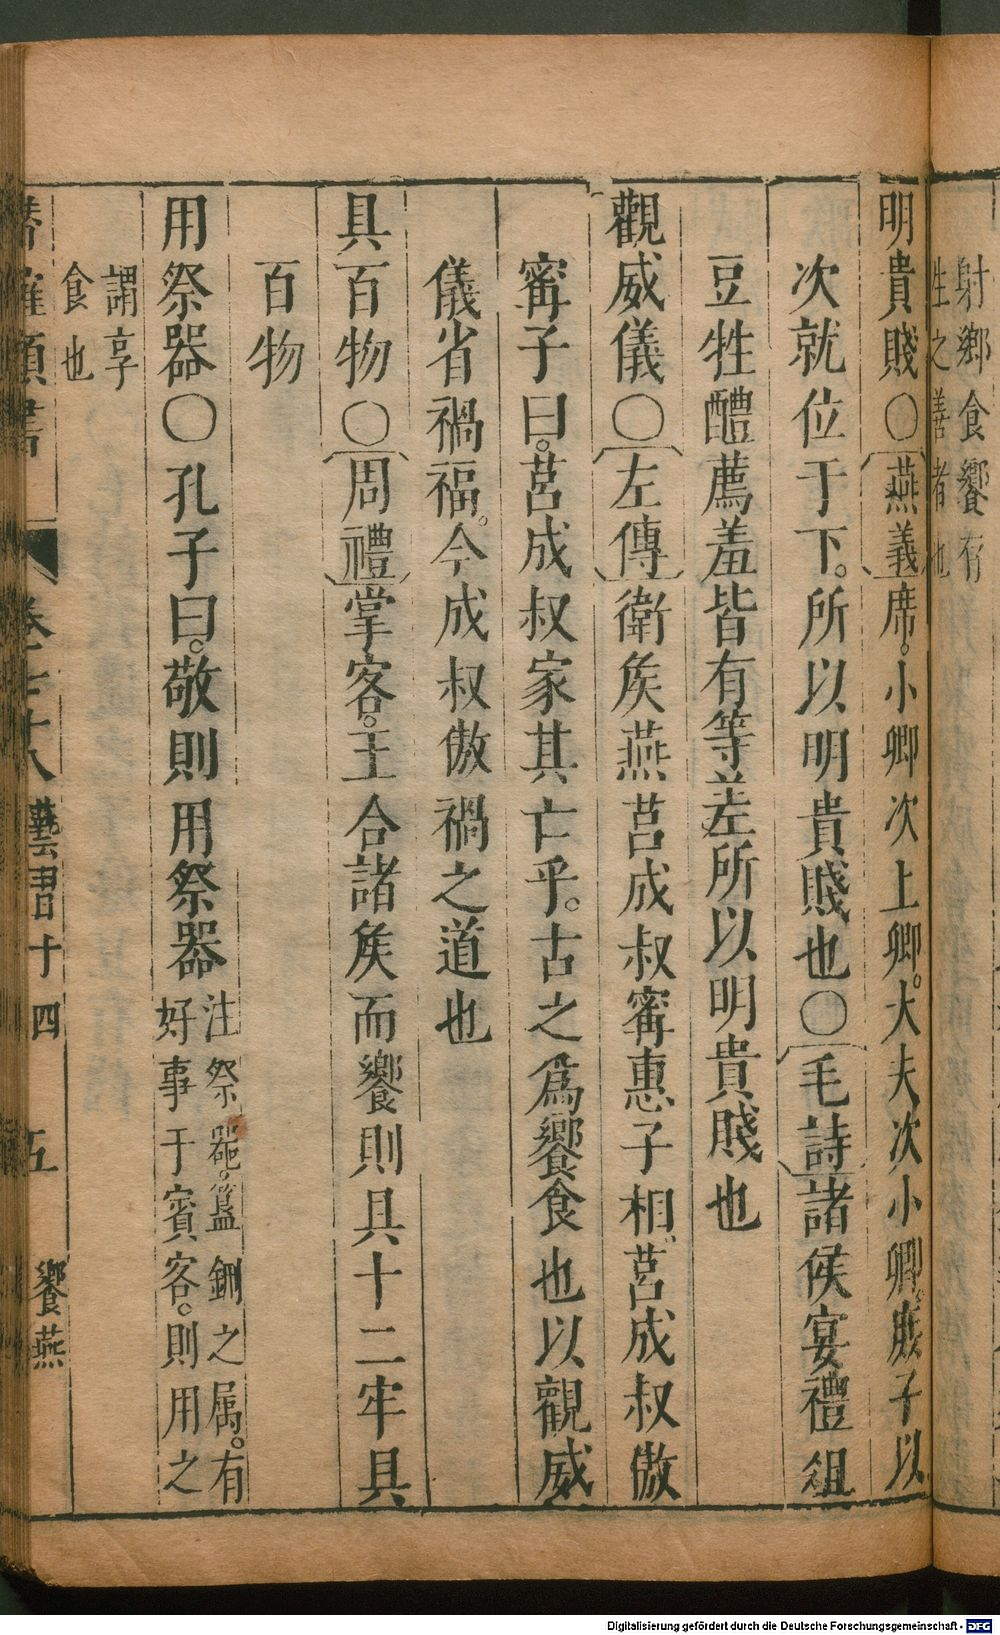 射鄉食饗有
牲之善者也
明貴賤〇燕義席。小卿次上卿。大夫次小卿。庶子以
次就位于下。所以明貴賤也〇毛詩諸侯宴禮俎
豆牲醴薦羞皆有等差所以明貴賤也
觀威儀〇左傳衛矦燕莒成叔甯惠子相。莒成叔傲
甯子曰。莒成叔家其亡乎。古之爲饗食也以觀威
儀省禍福。今成叔傲禍之道也
具百物〇周禮掌客。王合諸矦而饗則具十二牢具
百物
用祭器〇孔子曰。敬則用祭器注祭器。簋鉶之属。有
好事于賓客。則用之
謂享
食也
類書 卷七十八 藝習十四 五 饗燕
Digitalisierung gefördert durch die Deutsche Forschungsgemeinschaft - DFG